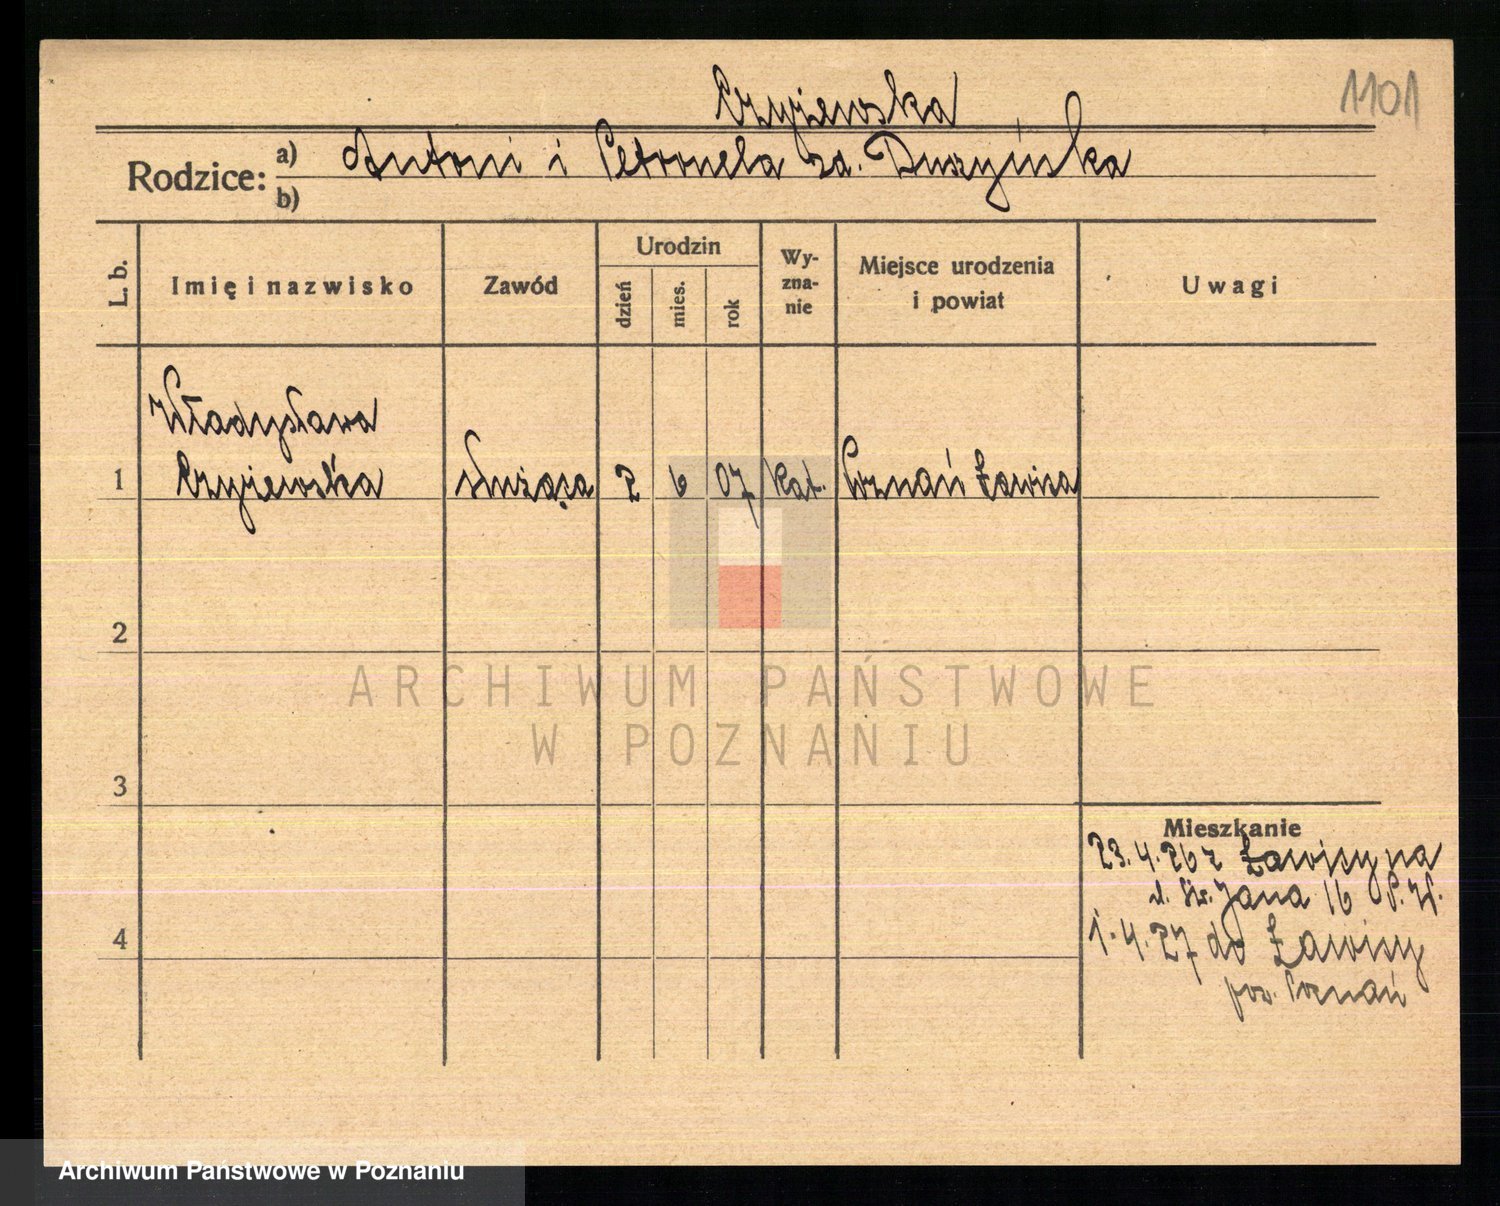 Czyżewska
1101
Rodzice: a) Antoni i Petronela za. Duszyńska
b)
L. b. Imię i nazwisko Zawód Urodzin dzień mies. rok Wy-zna-nie Miejsce urodzenia i powiat Uwagi
Władysława
1 Czyżewska służąca 2 6 07 kat. Poznań Ławica
2
ARCHIWUM PAŃSTWOWE
W POZNANIU
3
Mieszkanie
23.4.26 z Ławicy na
ul. Św. Jana 16
4
1.4.27 do Ławicy
pow. Poznań
Archiwum Państwowe w Poznaniu